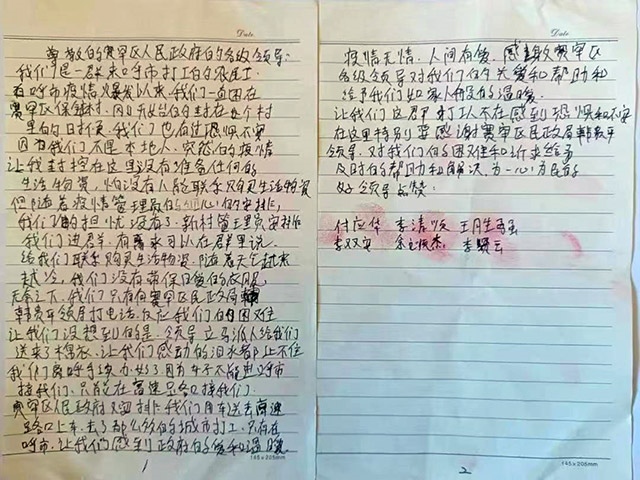 Date
尊敬的赛罕区人民政府的各级领导:
我们是一群来呼市打工的农民工.
在呼市疫情爆发以来,我们一直困在
赛罕区保全村.因为开始的封在这个村
里的日打使.我们也有过恐慌不安
因为我们不是本地人.突然的疫情
让我封控在这里没有准备任何的
生活物资,怕没有人能联系购买生活物资
但随着疫情管理员的细心的安排,
我们的担忧没有了.新村管理员安排
我们进群.有需求可以在群里说
给我们联系购买生活物资.随着天气越来
越冷,我们没有带保日暖的衣服,
无奈之下.我们只有向赛罕区民政局
韩贵平领导打电话反应我们的困难
让我们没想到的是.领导立马派人给我们
送来了棉衣.让我们感动的泪水都止不住
我们离呼手续办好了因为车子不能进呼市
接我们.只能在高速路口接我们.
赛罕区人民政府又安排我们用车送去高速
路口上车.去了那么多的城市打工.只有在
呼市.让我们感到政府的爱和温暖.
1
145x205mm
Date
疫情无情.人间有爱.感谢赛罕区
各级领导对我们的关爱和帮助和
给予我们如家人般的温暖.
让我们这群打工人不在感到恐慌和不安
在这里特别要感谢赛罕区民政局韩贵平
领导.对我们的困难和诉求给予
及时的帮助和解决.为一心为民的
好领导点赞:
付应华 李清 王胜
李双安 余 杰 李 云
2
145x205mm